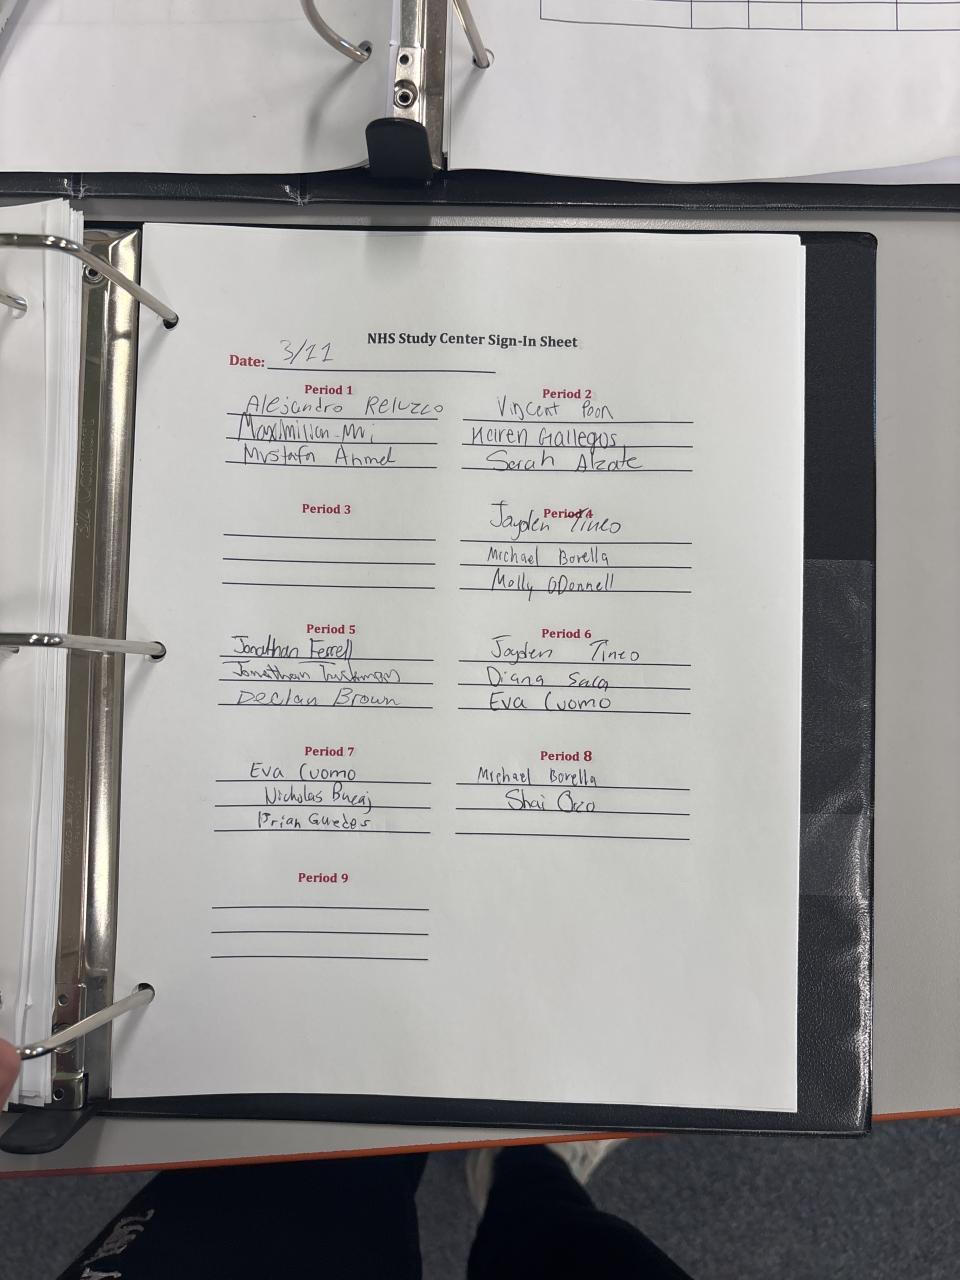 NHS Study Center Sign-In Sheet
Date: 3/11
Period 1
Alejandro Reluzco
Maximilian
Mustafa Ahmed
Period 2
Vincent Poon
Keiren Gallegos
Sarah Alzate
Period 3
Period 4
Jayden Tineo
Michael Borella
Molly ODonnell
Period 5
Jonathan Ferrell
Jonathan
Declan Brown
Period 6
Jayden Tineo
Diana Sala
Eva Cuomo
Period 7
Eva Cuomo
Nicholas Bucaj
Brian Guedes
Period 8
Michael Borella
Shai
Period 9